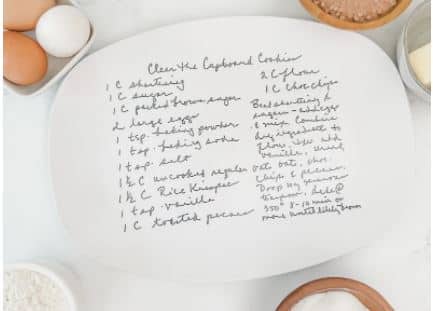 Clear the Cupboard Cookies
1 C shortening
1 C sugar
1 C packed brown sugar
2 large eggs
1 tsp. baking powder
1 tsp. baking soda
1 tsp. salt
1½ C uncooked regular oats
1½ C Rice Krispies
1 tsp. vanilla
1 C toasted pecans
2 C flour
1 C Choc chips
Beat shortening &
sugars - add eggs
& mix. Combine
dry ingredients to
flour, mix add
vanilla,
oats, choc.
chips & pecans.
Drop by
teaspoon, bake @
350° 8-10 min or
more until lightly brown